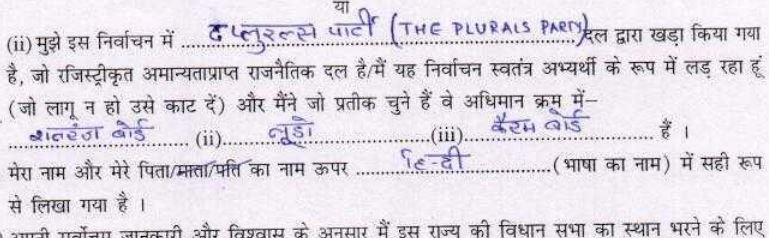 या
(ii) मुझे इस निर्वाचन में द प्लुरल्स पार्टी (THE PLURALS PARTY) दल द्वारा खड़ा किया गया
है, जो रजिस्ट्रीकृत अमान्यताप्राप्त राजनैतिक दल है/मैं यह निर्वाचन स्वतंत्र अभ्यर्थी के रूप में लड़ रहा हूं
(जो लागू न हो उसे काट दें) और मैंने जो प्रतीक चुने हैं वे अधिमान क्रम में–
शतरंज बोर्ड (ii) लूडो (iii) कैरम बोर्ड हैं ।
मेरा नाम और मेरे पिता/माता/पति का नाम ऊपर हिन्दी (भाषा का नाम) में सही रूप
से लिखा गया है ।
अपनी सर्वोत्तम जानकारी और विश्वास के अनुसार मैं इस राज्य की विधान सभा का स्थान भरने के लिए